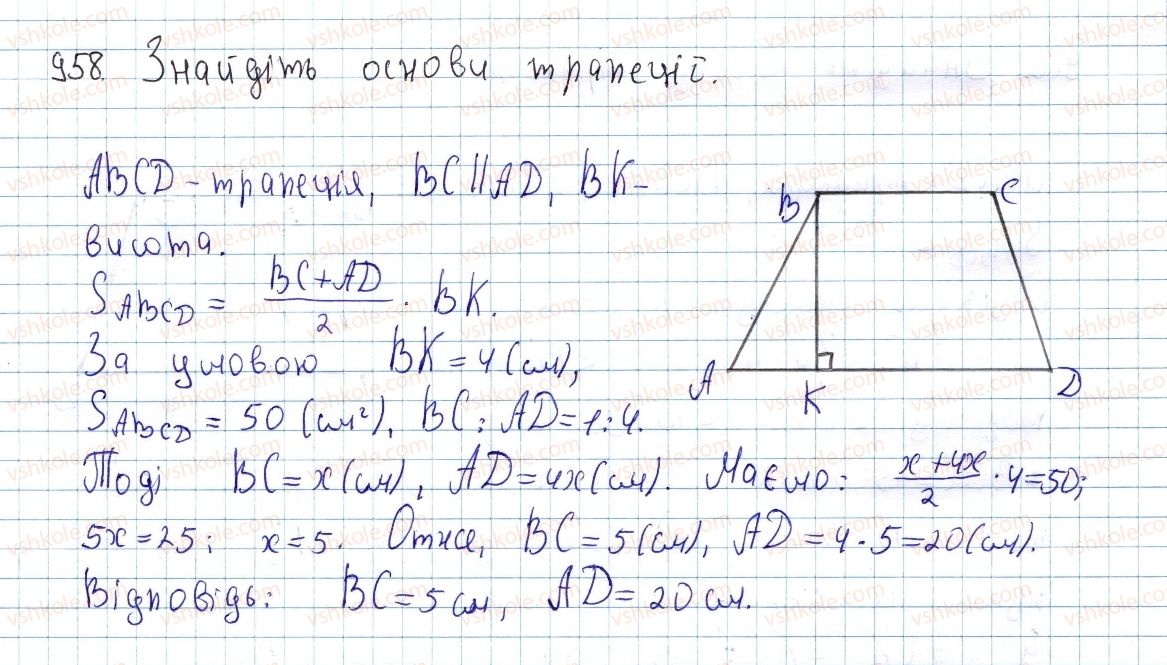 958. Знайдіть основи трапеції.
ABCD - трапеція, BC || AD, BK -
висота.
S ABCD = (BC + AD)/2 · BK.
За умовою BK = 4 (см),
S ABCD = 50 (см²), BC : AD = 1 : 4.
Тоді BC = x (см), AD = 4x (см). Маємо: (x + 4x)/2 · 4 = 50;
5x = 25; x = 5. Отже, BC = 5 (см), AD = 4 · 5 = 20 (см).
Відповідь: BC = 5 см, AD = 20 см.
B C
A K D
vshkole.com